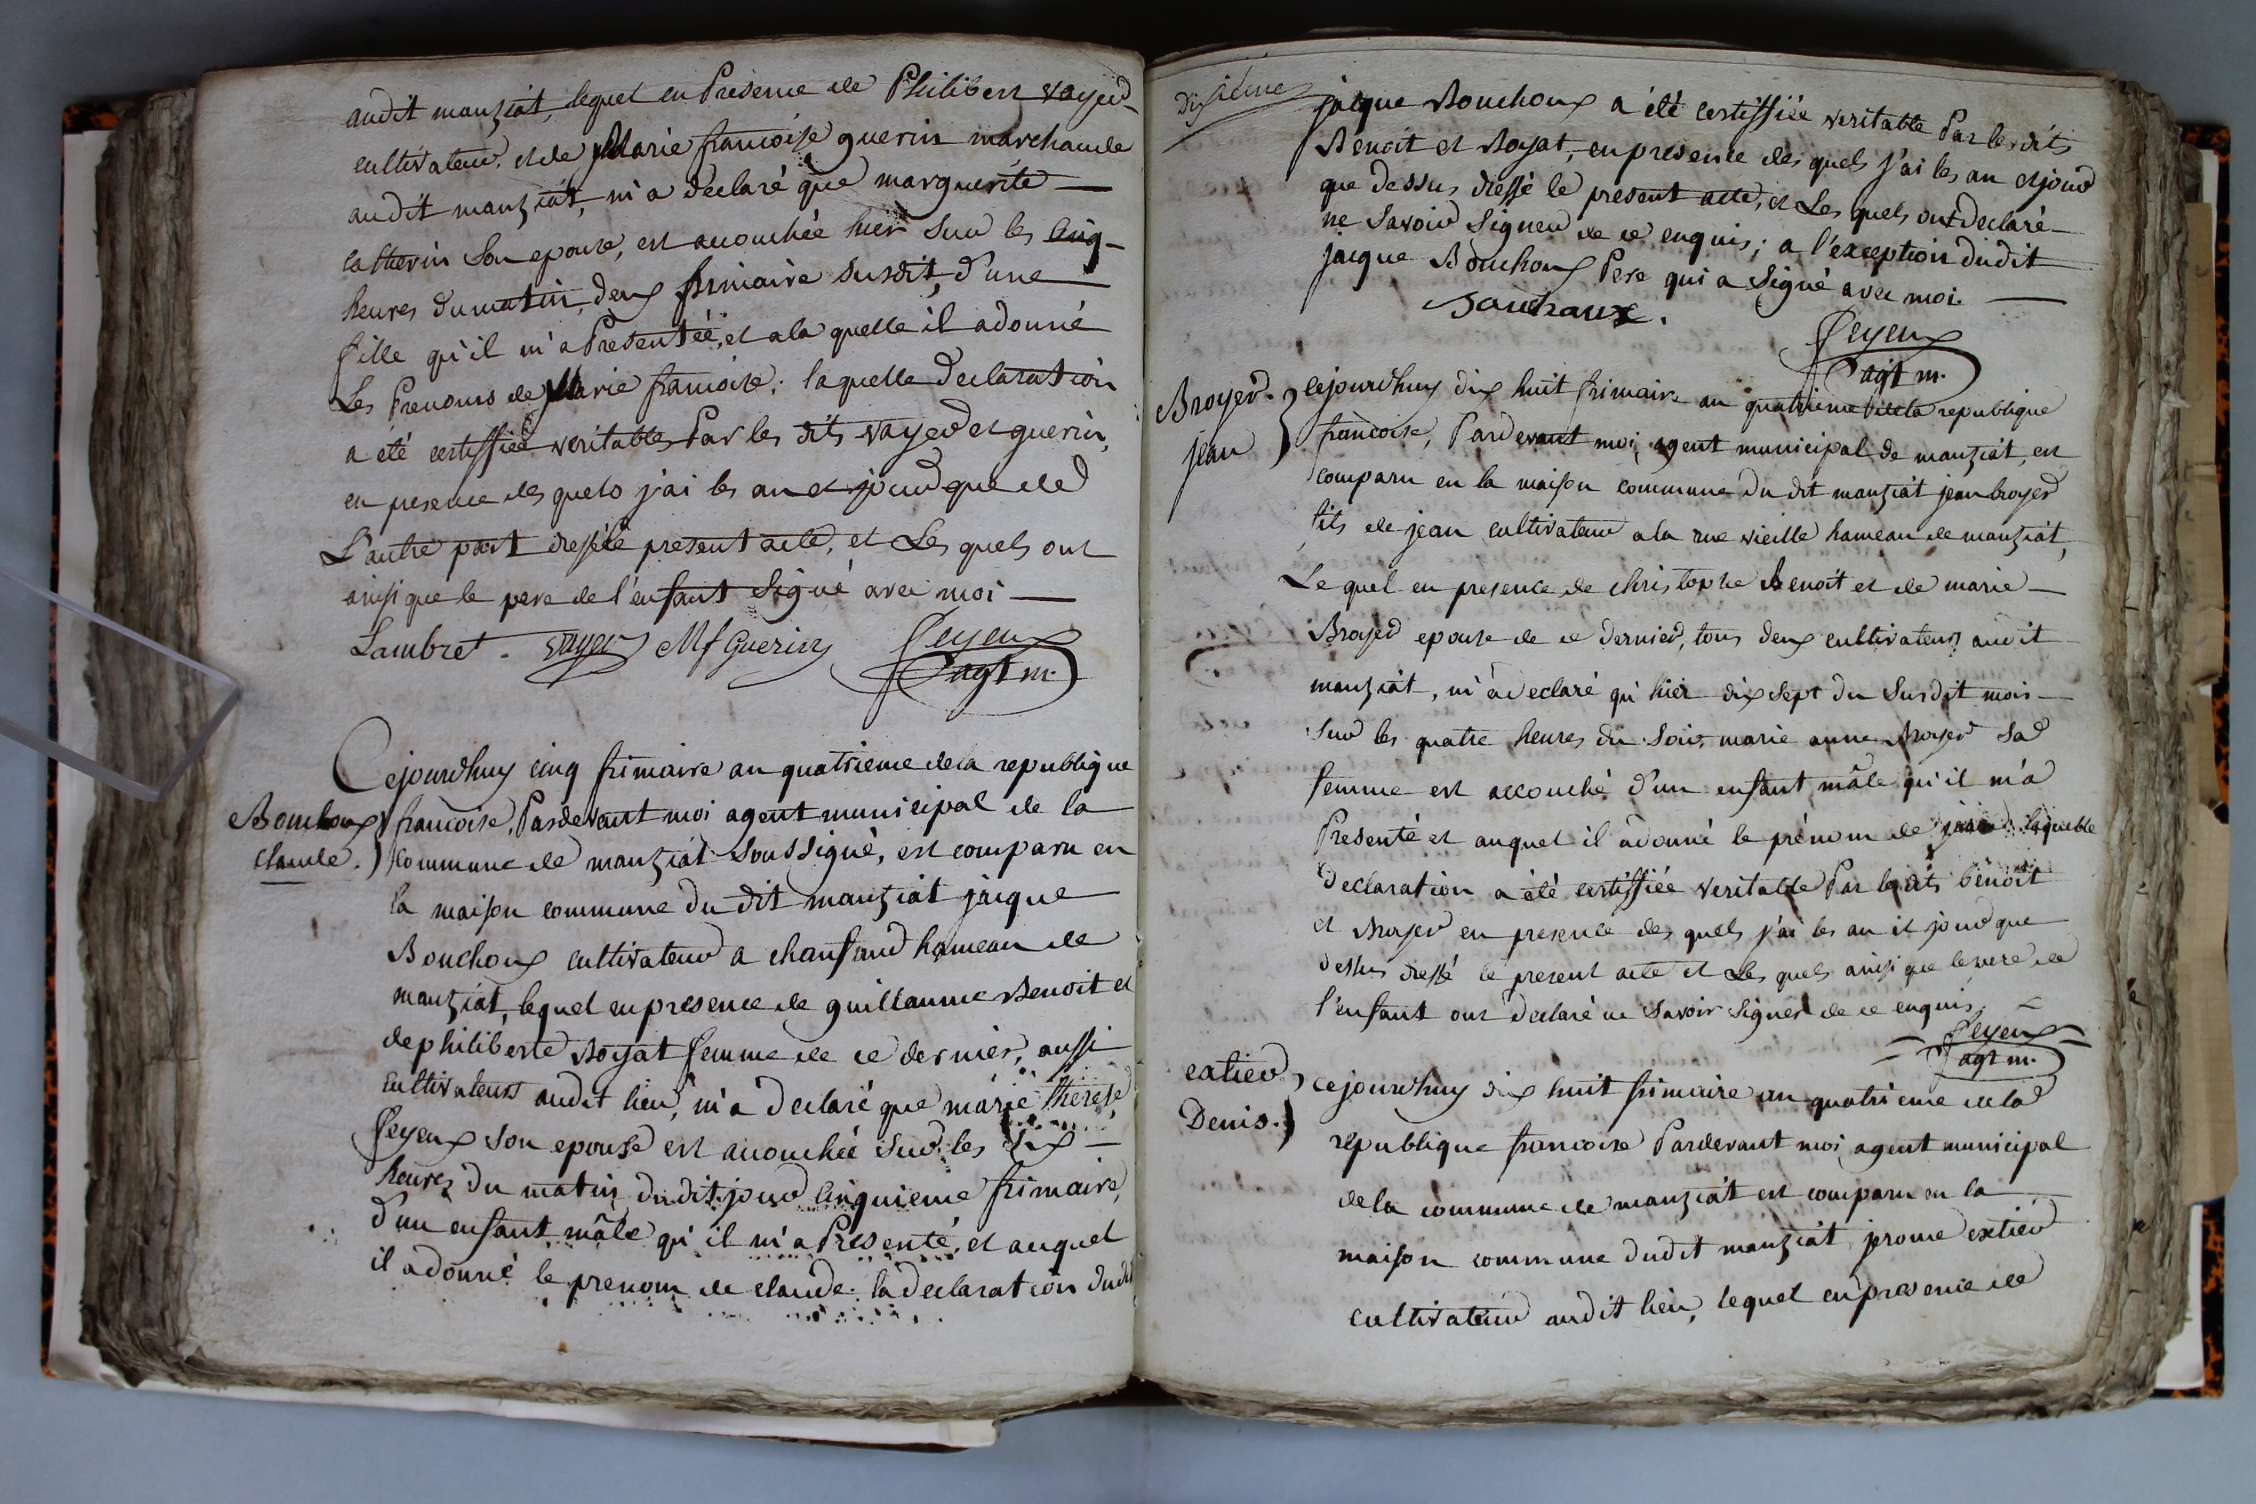 audit manziat, lequel en Présence de Philibert vayer
cultivateur, et de Marie francoise guerin marchande
audit manziat, m'a déclaré que marguerite
catherin Son epouse, est accouchée hier Sur les cinq
heures du matin, deux frimaire Susdit, d'une
fille qu'il m'a Présentée, et a la quelle il a donné
Les Prenoms de Marie francoise; laquelle declaration
a été certiffiée veritable Par les dits vayer et guerin,
en presence des quels j'ai les an et jour que de
L'autre part dressé le present acte, et Les quels ont
ainsi que le pere de l'enfant Signé avec moi
Lambret. vayer Mf Guerin feyeux
agt m.
Cejourd'huy cinq frimaire an quatrieme de la republique
Bouchoux francoise, Pardevant moi agent municipal de la
claude. commune de manziat Soussigné, est comparu en
la maison commune du dit manziat jacque
Bouchoux cultivateur a chanfand hameau de
manziat, lequel en presence de guillaume Benoit et
de philiberte Boyat femme de ce dernier, aussi
cultivateurs audit lieu, m'a déclaré que marie therese
feyeux son epouse est accouchée Sur les dix
heures du matin, dudit jour cinquieme frimaire,
d'un enfant mâle qu'il m'a Présenté, et auquel
il a donné le prenom de claude. la declaration dudit
Dixieme
jacque Bouchoux a été certiffiée veritable Par les dits
Benoit et Boyat, en presence des quels j'ai les an et jour
que dessus dressé le present acte, et Les quels ont declaré
ne Savoir Signer de ce enquis; a l'exception dudit
jacque Bouchoux Pere qui a Signé avec moi.
Bouchoux.
feyeux
agt m.
Broyer. cejourd'huy dix huit frimaire an quatrieme de la republique
jean francoise, Pardevant moi, agent municipal de manziat, est
comparu en la maison commune du dit manziat jean broyer
fils de jean cultivateur a la rue vieille hameau de manziat,
Le quel en presence de christophe Benoit et de marie
Broyer epouse de ce dernier, tous deux cultivateurs audit
manziat, m'a declaré qu'hier dix sept du Susdit mois
Sur les quatre heures du Soir, marie anne Broyer Sa
femme est accouché d'un enfant mâle qu'il m'a
Presenté et auquel il a donné le prénom de jean; laquelle
declaration a été certiffiée veritable Par lesdits benoit
et Broyer en presence des quels j'ai les an et jour que
dessus dressé le present acte et Les quels ainsi que le pere de
l'enfant ont declaré ne Savoir Signer de ce enquis.
feyeux
agt m.
catier, cejourd'huy dix huit frimaire an quatrieme de la
Denis. republique francoise Pardevant moi, agent municipal
de la commune de manziat est comparu en la
maison commune dudit manziat, jerome catier
cultivateur audit lieu, lequel en presence de